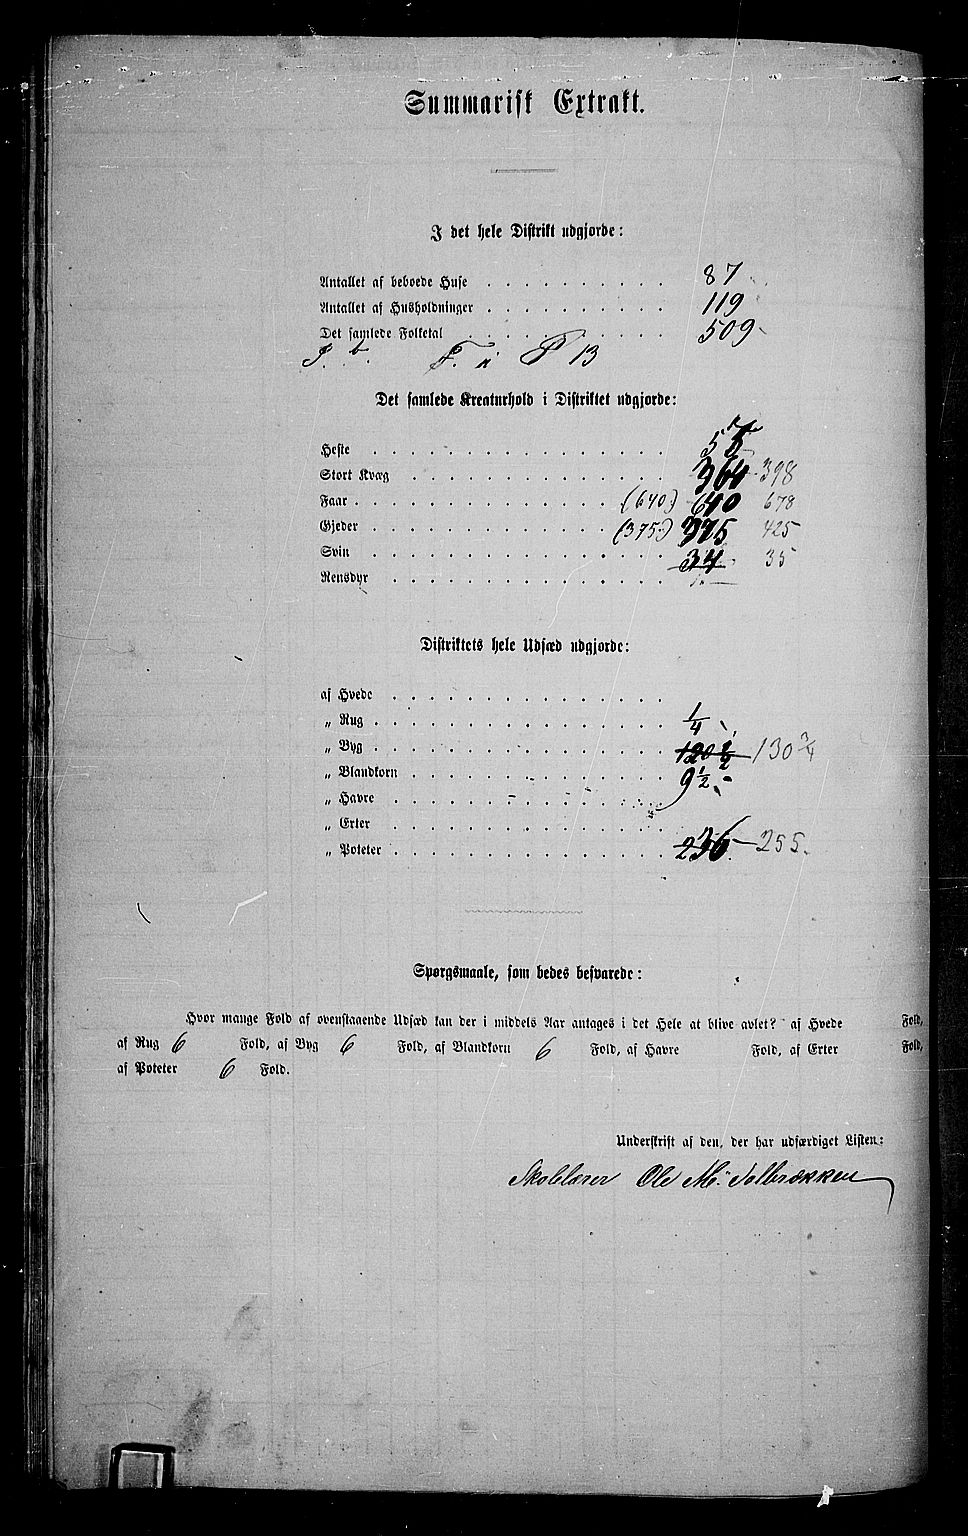 Summarisk Extrakt.
I det hele Distrikt udgjorde:
Antallet af beboede Huse . . . . . . . . . . 87
Antallet af Husholdninger . . . . . . . . . . 119
Det samlede Folketal . . . . . . . . . . 509
Det samlede Kreaturhold i Distriktet udgjorde:
Heste . . . . . . . . . . 5
Stort Kvæg . . . . . . . . . . 364 398
Faar . . . . . . . . . . (640.) 640 678
Gjeder . . . . . . . . . . (375.) 375 425
Svin . . . . . . . . . . 34 35
Rensdyr . . . . . . . . . .
Distriktets hele Udsæd udgjorde:
af Hvede . . . . . . . . . .
„ Rug . . . . . . . . . . 1/4
„ Byg . . . . . . . . . . 120 1/2 130 3/4
„ Blandkorn . . . . . . . . . . 9 1/2
„ Havre . . . . . . . . . .
„ Erter . . . . . . . . . .
„ Poteter . . . . . . . . . . 236 255.
Spørgsmaale, som bedes besvarede:
Hvor mange Fold af ovenstaaende Udsæd kan der i middels Aar antages i det Hele at blive avlet? af Hvede Fold,
af Rug 6 Fold, af Byg 6 Fold, af Blandkorn 6 Fold, af Havre Fold, af Erter Fold,
af Poteter 6 Fold.
Underskrift af den, der har udfærdiget Listen:
Skolelærer Ole M. Solbrækken